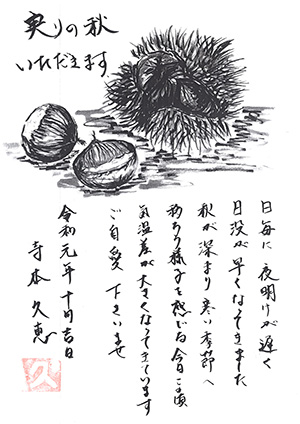 実りの秋
いただきます
日毎に 夜明けが遅く
日没が 早くなってきました
秋が深まり 寒い季節へ
移ろう様子を感じる今日この頃
気温差が大きくなってきています
ご自愛 下さいませ
令和元年十月吉日
寺本 久恵
久